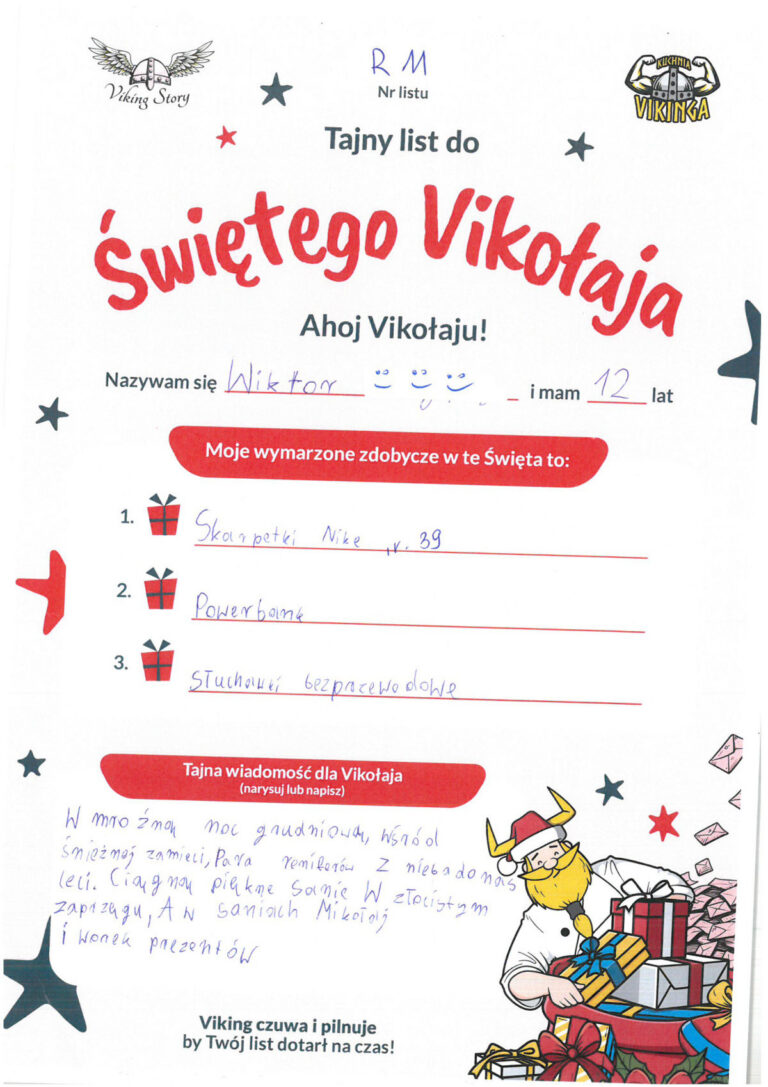 Viking Story
RM
Nr listu
KUCHNIA
VIKINGA
Tajny list do
Świętego Vikołaja
Ahoj Vikołaju!
Nazywam się Wiktor i mam 12 lat
Moje wymarzone zdobycze w te Święta to:
1. Skarpetki Nike r. 39
2. Powerbank
3. Słuchawki bezprzewodowe
Tajna wiadomość dla Vikołaja
(narysuj lub napisz)
W mroźną noc grudniową, Wśród
śnieżnej zamieci, Para reniferów z nieba do nas
leci. Ciągną piękne sanie W złocistym
zaprzęgu, A w saniach Mikołaj
i worek prezentów
Viking czuwa i pilnuje
by Twój list dotarł na czas!